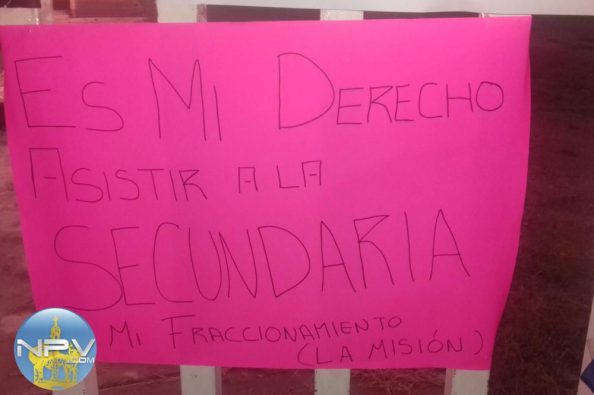 ES MI DERECHO
ASISTIR A LA
SECUNDARIA
MI FRACCIONAMIENTO
(LA MISIÓN)
NPV
.COM